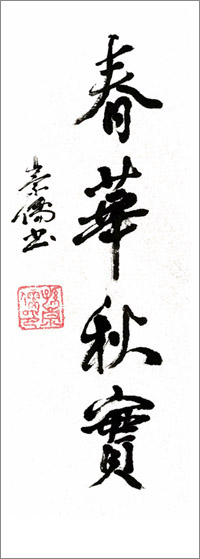 春華秋實
素儒書